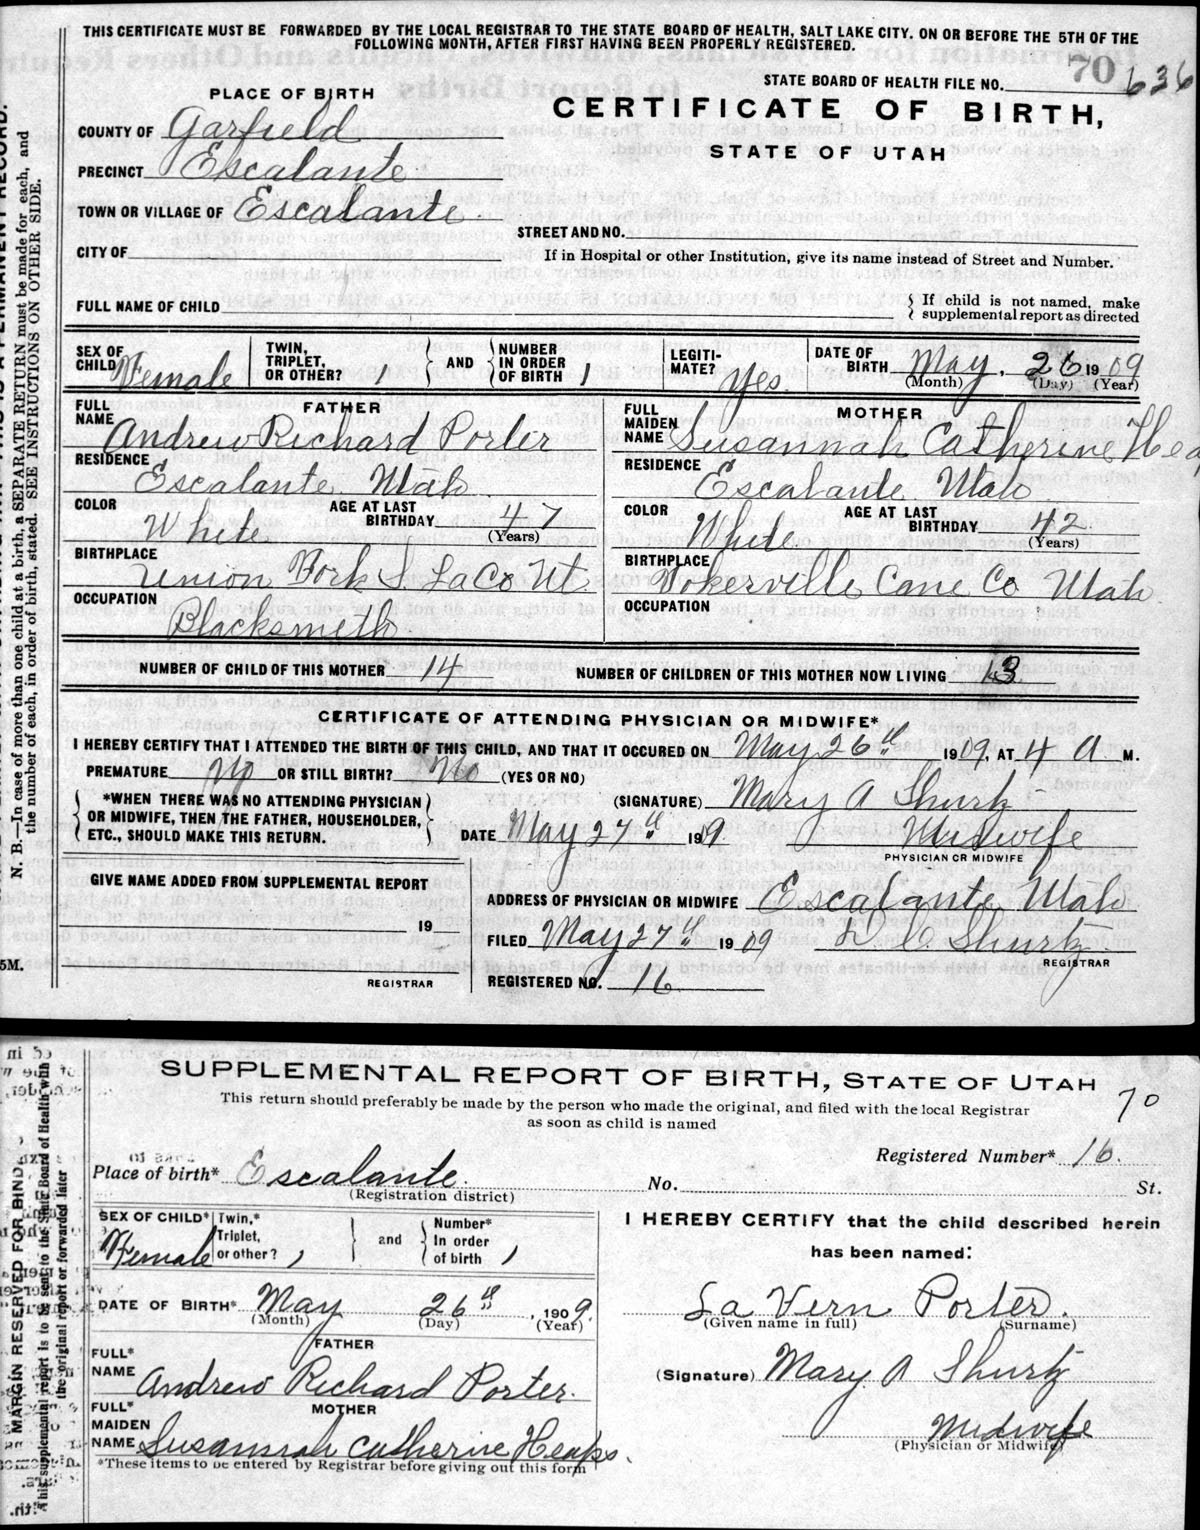 THIS CERTIFICATE MUST BE FORWARDED BY THE LOCAL REGISTRAR TO THE STATE BOARD OF HEALTH, SALT LAKE CITY. ON OR BEFORE THE 5TH OF THE
FOLLOWING MONTH, AFTER FIRST HAVING BEEN PROPERLY REGISTERED.
STATE BOARD OF HEALTH FILE NO. 70 636
PLACE OF BIRTH
CERTIFICATE OF BIRTH,
STATE OF UTAH
COUNTY OF Garfield
PRECINCT Escalante
TOWN OR VILLAGE OF Escalante
STREET AND NO.
CITY OF
If in Hospital or other Institution, give its name instead of Street and Number.
FULL NAME OF CHILD
{ If child is not named, make
supplemental report as directed
SEX OF CHILD Female
TWIN, TRIPLET, OR OTHER? 1 } AND { NUMBER IN ORDER OF BIRTH 1
LEGITIMATE? Yes.
DATE OF BIRTH May. 26 1909
(Month) (Day) (Year)
FATHER
FULL NAME Andrew Richard Porter
RESIDENCE Escalante Utah
COLOR White AGE AT LAST BIRTHDAY 47
(Years)
BIRTHPLACE Union Fork S. La Co Ut.
OCCUPATION Blacksmith
MOTHER
FULL MAIDEN NAME Susannah Catherine Hea
RESIDENCE Escalante Utah
COLOR White AGE AT LAST BIRTHDAY 42
(Years)
BIRTHPLACE Tokerville Cane Co Utah
OCCUPATION
NUMBER OF CHILD OF THIS MOTHER 14 NUMBER OF CHILDREN OF THIS MOTHER NOW LIVING 13
CERTIFICATE OF ATTENDING PHYSICIAN OR MIDWIFE*
I HEREBY CERTIFY THAT I ATTENDED THE BIRTH OF THIS CHILD, AND THAT IT OCCURED ON May 26th 1909, AT 4 A M.
PREMATURE No OR STILL BIRTH? No (YES OR NO)
{ *WHEN THERE WAS NO ATTENDING PHYSICIAN
OR MIDWIFE, THEN THE FATHER, HOUSEHOLDER,
ETC., SHOULD MAKE THIS RETURN. }
(SIGNATURE) Mary A Shurtz
DATE May 27th 199. Midwife
PHYSICIAN OR MIDWIFE
GIVE NAME ADDED FROM SUPPLEMENTAL REPORT
19
REGISTRAR
ADDRESS OF PHYSICIAN OR MIDWIFE Escalante Utah
FILED May 27th 1909 D. C. Shurtz
REGISTRAR
REGISTERED NO. 16
5M.
N. B.—In case of more than one child at a birth, a SEPARATE RETURN must be made for each, and
the number of each, in order of birth, stated. SEE INSTRUCTIONS ON OTHER SIDE.
SUPPLEMENTAL REPORT OF BIRTH, STATE OF UTAH
This return should preferably be made by the person who made the original, and filed with the local Registrar
as soon as child is named
70
Registered Number* 16.
Place of birth* Escalante. No. St.
(Registration district)
SEX OF CHILD* Female
Twin,* Triplet, or other? 1 } and { Number* In order of birth 1
DATE OF BIRTH* May 26th, 1909.
(Month) (Day) (Year)
FATHER
FULL* NAME Andrew Richard Porter.
MOTHER
FULL* MAIDEN NAME Susannah Catherine Heaps.
*These items to be entered by Registrar before giving out this form
I HEREBY CERTIFY that the child described herein
has been named:
La Vern Porter.
(Given name in full) (Surname)
(Signature) Mary A Shurtz
Midwife
(Physician or Midwife)
MARGIN RESERVED FOR BIND
This supplemental report is to be sent to the State Board of Health with
the original report or forwarded later